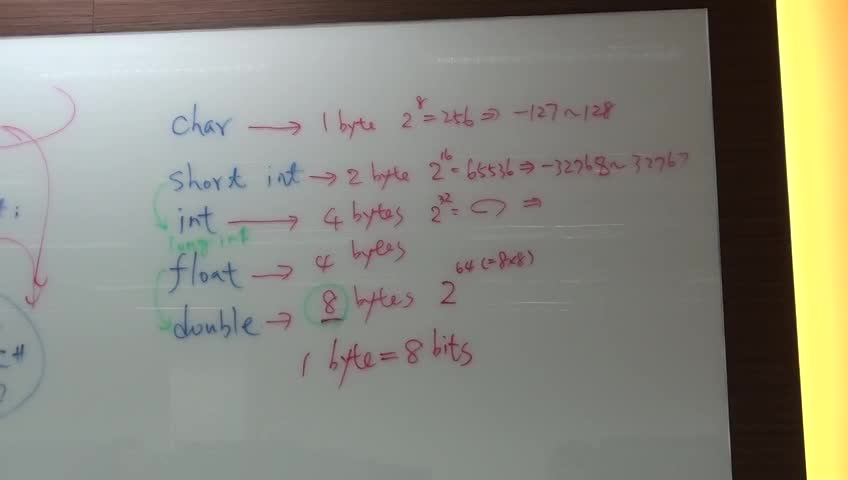 char → 1 byte 2^8 = 256 ⇒ -127 ~ 128
short int → 2 byte 2^16 = 65536 ⇒ -32768 ~ 32767
int → 4 bytes 2^32 = ⇒
long int
float → 4 bytes
double → 8 bytes 2^64 (=8x8)
1 byte = 8 bits